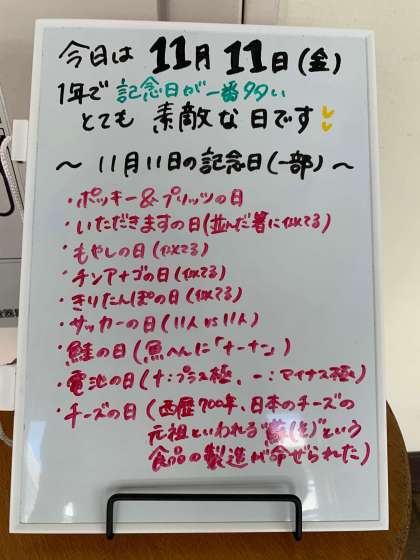 今日は 11月 11日(金)
1年で 記念日が一番多い
とても 素敵な 日です
～ 11月11日の記念日(一部) ～
・ポッキー&プリッツの日
・いただきますの日(並んだ箸に似てる)
・もやしの日(似てる)
・チンアナゴの日(似てる)
・きりたんぽの日(似てる)
・サッカーの日(11人 vs 11人)
・鮭の日(魚へんに「十一十一」)
・電池の日(+:プラス極、-:マイナス極)
・チーズの日(西歴700年、日本のチーズの
元祖といわれる"蘇(そ)"という
食品の製造が命ぜられた)